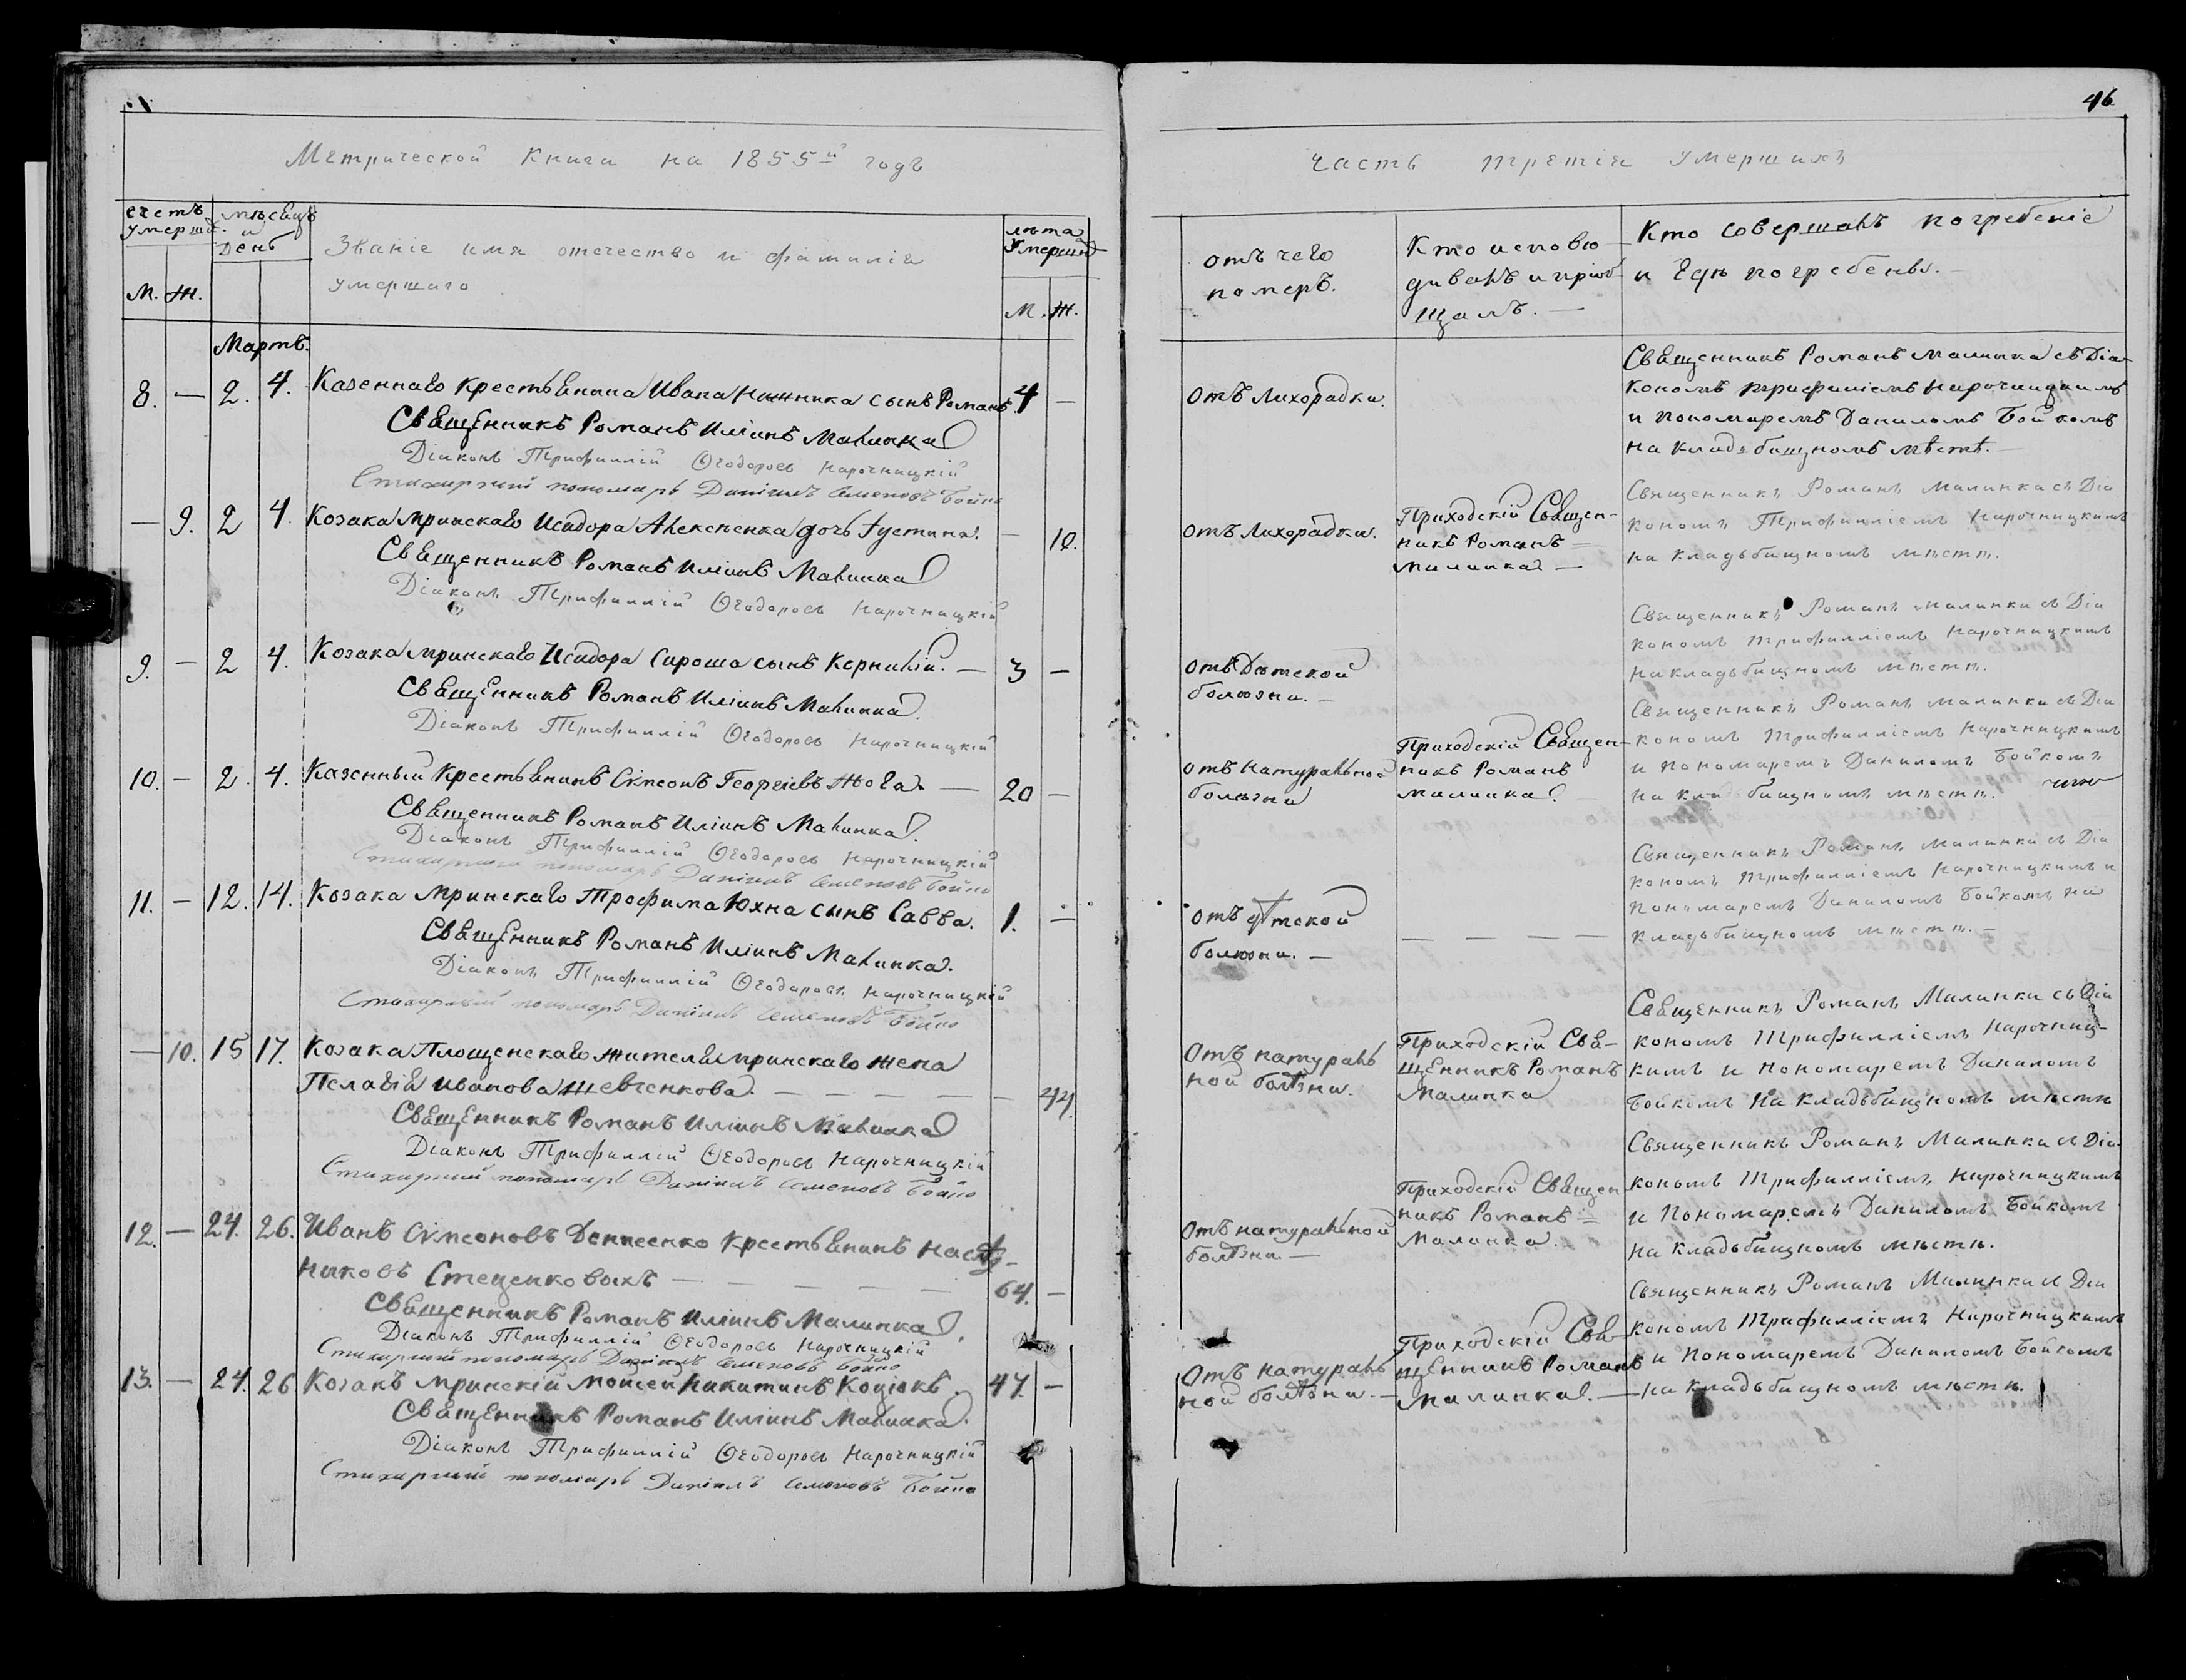 46
Метрической Книги на 1855й годъ
часть третія умершихъ
счетъ умерш.
мѣсяцъ и день
Званіе имя отечество и фамилія
умершаго
лѣта умерш
М. Ж.
М. Ж.
отъ чего
померъ.
Кто исповѣ
дивалъ и пріоб
щалъ. —
Кто совершалъ погребеніе
и гдѣ погребены. —
Мартъ.
8. — 2. 4. Казеннаго крестьянина Ивана сынъ Романъ. 4 —
Священникъ Романъ Иліинъ Малинка
Діаконъ Трифиллій Ѳеодоровъ Нарочницкій
Стихарный пономарь Даніилъ Семеновъ Бойко
отъ Лихорадки.
Священникъ Романъ Малинка съ Діа-
кономъ Трифиліемъ Нарочницкимъ
и Пономаремъ Даниломъ Бойкомъ
на кладьбищномъ мѣстѣ. —
— 9. 2 4. Козака мринскаго Исидора Алексѣенка дочь Іустина. — 10.
Священникъ Романъ Иліинъ Малинка
Діаконъ Трифиллій Ѳеодоровъ Нарочницкій
отъ Лихорадки.
Приходскій Священ-
никъ Романъ —
Малинка —
Священникъ Романъ Малинка съ Діа
кономъ Трифилліемъ Нарочницкимъ
на кладьбищномъ мѣстѣ.
9. — 2 4. Козака мринскаго Исидора Сироша сынъ Корнилій. — 3 —
Священникъ Романъ Иліинъ Малинка.
Діаконъ Трифиллій Ѳеодоровъ Нарочницкій
отъ Дѣтской
болѣзни. —
Священникъ Романъ Малинка съ Діа
кономъ Трифилліемъ Нарочницкимъ
на кладьбищномъ мѣстѣ.
10. — 2. 4. Казенный крестьянинъ Симеонъ Георгіевъ — 20 —
Священникъ Романъ Иліинъ Малинка.
Діаконъ Трифиллій Ѳеодоровъ Нарочницкій
Стихарный пономарь Даніилъ Семеновъ Бойко
отъ Натуральной
болѣзни
Приходскій Священ-
никъ Романъ
Малинка.
Священникъ Романъ Малинка съ Діа
кономъ Трифилліемъ Нарочницкимъ
и Пономаремъ Даниломъ Бойкомъ
на кладьбищномъ мѣстѣ.
11. — 12. 14. Козака Мринскаго Трофима Юхна сынъ Савва. 1. —
Священникъ Романъ Иліинъ Малинка.
Діаконъ Трифиллій Ѳеодоровъ Нарочницкій
Стихарный пономарь Даніилъ Семеновъ Бойко
отъ дѣтской
болѣзни. —
— — — —
Священникъ Романъ Малинка съ Діа
кономъ Трифилліемъ Нарочницкимъ и
Пономаремъ Даниломъ Бойкомъ на
кладьбищномъ мѣстѣ. —
— 10. 15 17. Козака Площенскаго жителя мринскаго жена
Пелагія Иванова Шевченкова. — — — — — 44.
Священникъ Романъ Иліинъ Малинка
Діаконъ Трифиллій Ѳеодоровъ Нарочницкій
Стихарный пономарь Даніилъ Семеновъ Бойко
Отъ натураль
ной болѣзни.
Приходскій Свя-
щенникъ Романъ
Малинка
Священникъ Романъ Малинка съ Діа
кономъ Трифилліемъ Нарочниц-
кимъ и Пономаремъ Даниломъ
Бойкомъ на кладьбищномъ мѣстѣ
12. — 24. 26. Иванъ Симеоновъ Денисенко крестьянинъ наслѣд-
никовъ Стеценковыхъ — — — — — 64. —
Священникъ Романъ Иліинъ Малинка.
Діаконъ Трифиллій Ѳеодоровъ Нарочницкій
Стихарный пономарь Даніилъ Семеновъ Бойко
Отъ натуральной
болѣзни —
Приходскій Священ
никъ Романъ —
Малинка.
Священникъ Романъ Малинка съ Діа
кономъ Трифилліемъ Нарочницкимъ
и Пономаремъ Даниломъ Бойкомъ
на кладьбищномъ мѣстѣ.
13. — 24. 26 Козакъ мринскій Моисей Никитинъ Коцюкъ. 47. —
Священникъ Романъ Иліинъ Малинка.
Діаконъ Трифиллій Ѳеодоровъ Нарочницкій
Стихарный пономарь Даніилъ Семеновъ Бойко
Отъ натураль
ной болѣзни. —
Приходскій Свя-
щенникъ Романъ
Малинка. —
Священникъ Романъ Малинка съ Діа
кономъ Трифилліемъ Нарочницкимъ
и Пономаремъ Даниломъ Бойкомъ
на кладьбищномъ мѣстѣ.